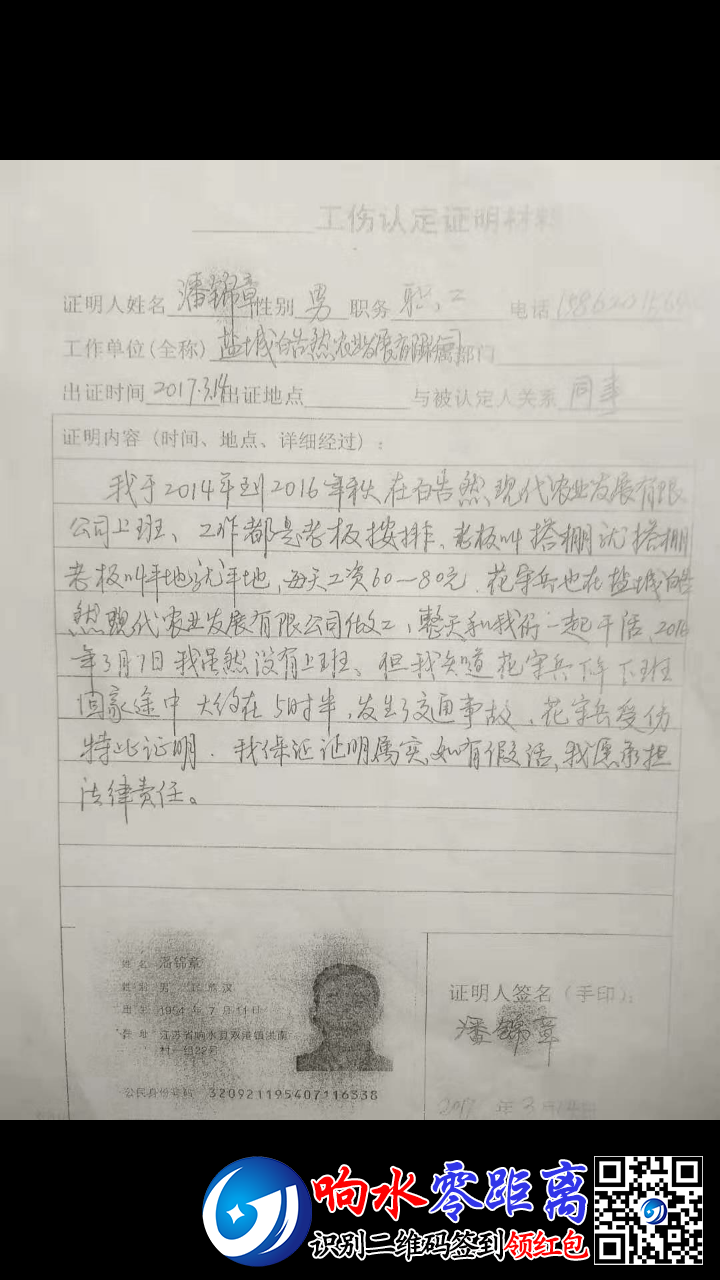 工伤认定证明材料
证明人姓名 潘锦章 性别 男 职务 职工 电话
工作单位(全称) 盐城白皓然农业发展有限公司 部门
出证时间 2017.3.14 出证地点 与被认定人关系 同事
证明内容(时间、地点、详细经过):
我于2014年到2016年秋在白皓然现代农业发展有限
公司上班、工作都是老板按排、老板叫搭棚就搭棚
老板叫平地就平地,每天工资60—80元.花守兵也在盐城白皓
然现代农业发展有限公司做工,整天和我们一起干活,2016
年3月7日我虽然没有上班、但我知道花守兵下午下班
回家途中大约在5时半,发生了交通事故、花守兵受伤
特此证明.我保证证明属实,如有假话,我愿承担
法律责任。
姓名 潘锦章
性别 男 民族 汉
出生 1954年7月11日
住址 江苏省响水县双港镇洪南
村一组22号
公民身份号码 320921195407116338
证明人签名(手印):
潘锦章
2017年3月14日
响水零距离
识别二维码签到领红包